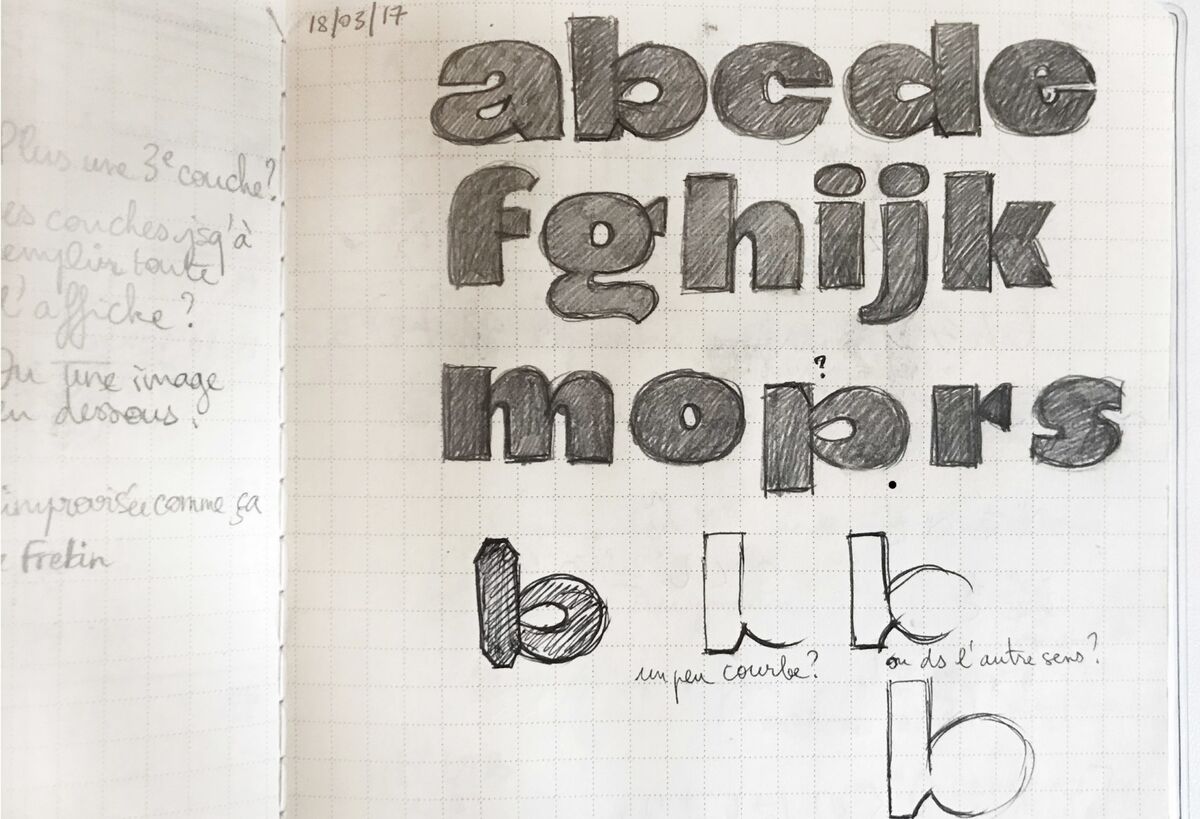 Plus une 3e couche?
es couches jsq'à
emplir toute
l'affiche?
Ou une image
en dessous.
improvisée comme ça
Frebin
18/03/17
abcde
fghijk
?
moprs
b
un peu courbe?
ou ds l'autre sens?
b